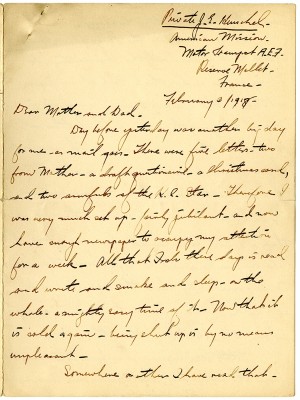 Private J. E. Henschel.
American Mission.
Motor Transport A.E.F.
Reserve Mallet.
France—
February 2/1918—
Dear Mother and Dad.
Day before yesterday was another big day
for me— as mail goes— There were five letters— two
from Mother— a draft questionnaire— a Christmas card,
and two                of the K.C. Star— Therefore I
was very much set up— fairly jubilant— and now
have enough newspaper to occupy my attention
for a week— All that I do these days is read
and write and smoke and sleep— on the
whole— a mighty easy time of it— Now that it
is cold again— being shut up is by no means
unpleasant—
Somewhere or other I have read that—